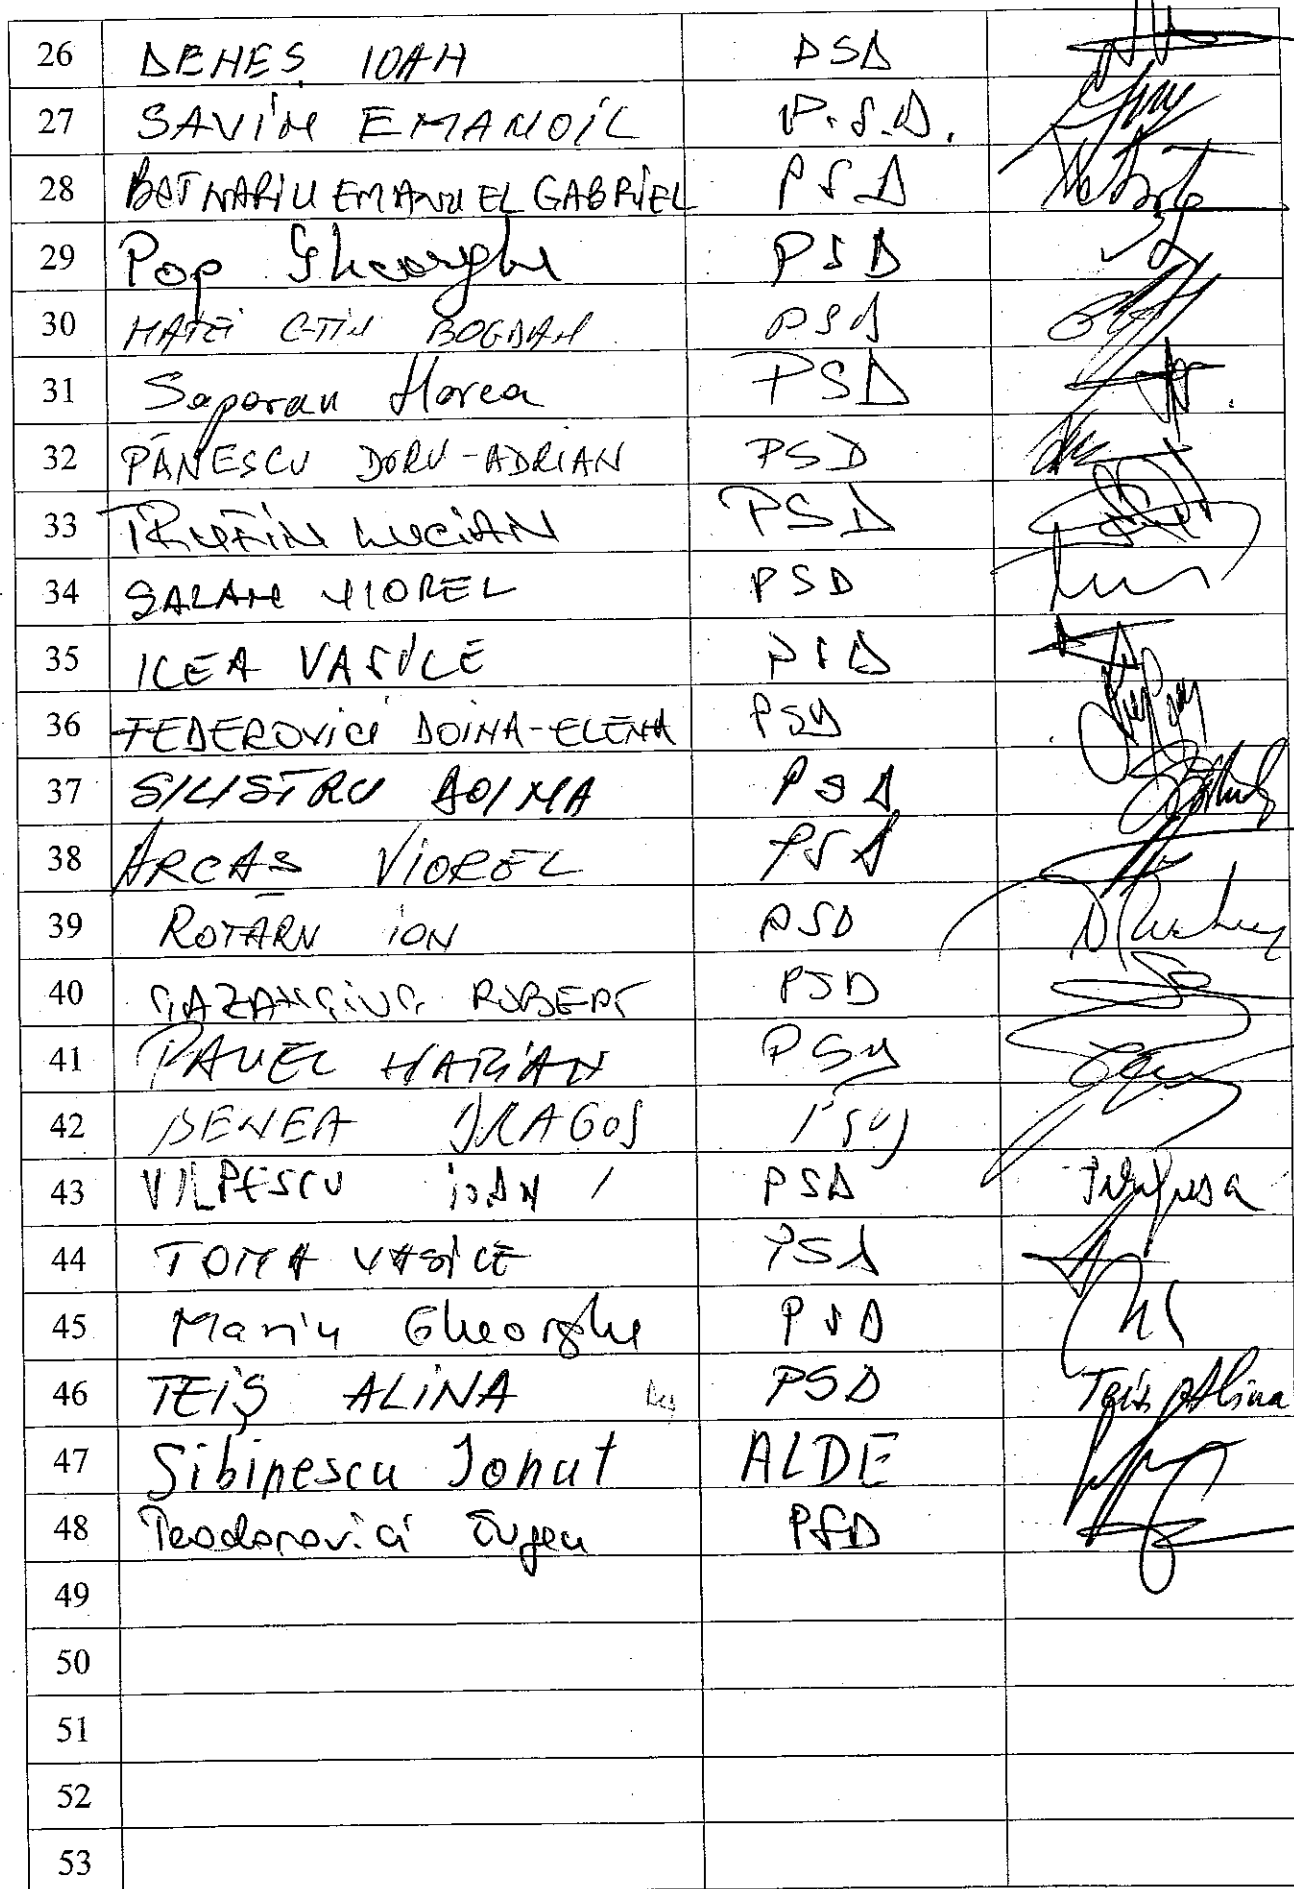 26 DENEȘ IOAN PSD
27 SAVIN EMANOIL P.S.D.
28 BOTNARIU EMANUEL GABRIEL PSD
29 Pop Gheorghe PSD
30 MATEI C-TIN BOGDAN PSD
31 Soporan Horea PSD
32 PĂNESCU DORU-ADRIAN PSD
33 TRUFIN LUCIAN PSD
34 SALAN VIOREL PSD
35 ILEA VASILE PSD
36 FEDEROVICI DOINA-ELENA PSD
37 SILISTRU DOINA PSD
38 ARCAȘ VIOREL PSD
39 ROTARU ION PSD
40 CAZANCIUC ROBERT PSD
41 PAVEL MARIAN PSD
42 BENEA DRAGOȘ PSD
43 VULPESCU IOAN PSD
44 TOMA VASILE PSD
45 Marin Gheorghe PSD
46 TEIȘ ALINA PSD Teiș Alina
47 Sibinescu Ionut ALDE
48 Teodorovici Eugen PSD
49
50
51
52
53